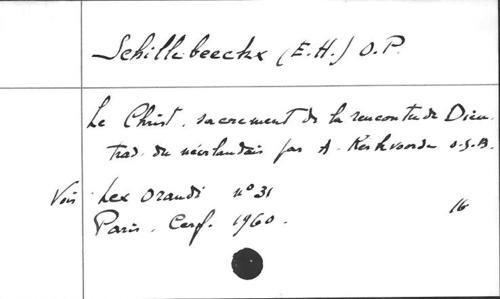 Schillebeeckx (E.H.) O.P.
Le Christ, sacrement de la rencontre de Dieu.
trad. du néerlandais par A. Kerkvoorde o.s.B.
Voir Lex Orandi n° 31
Paris. Cerf. 1960. 16